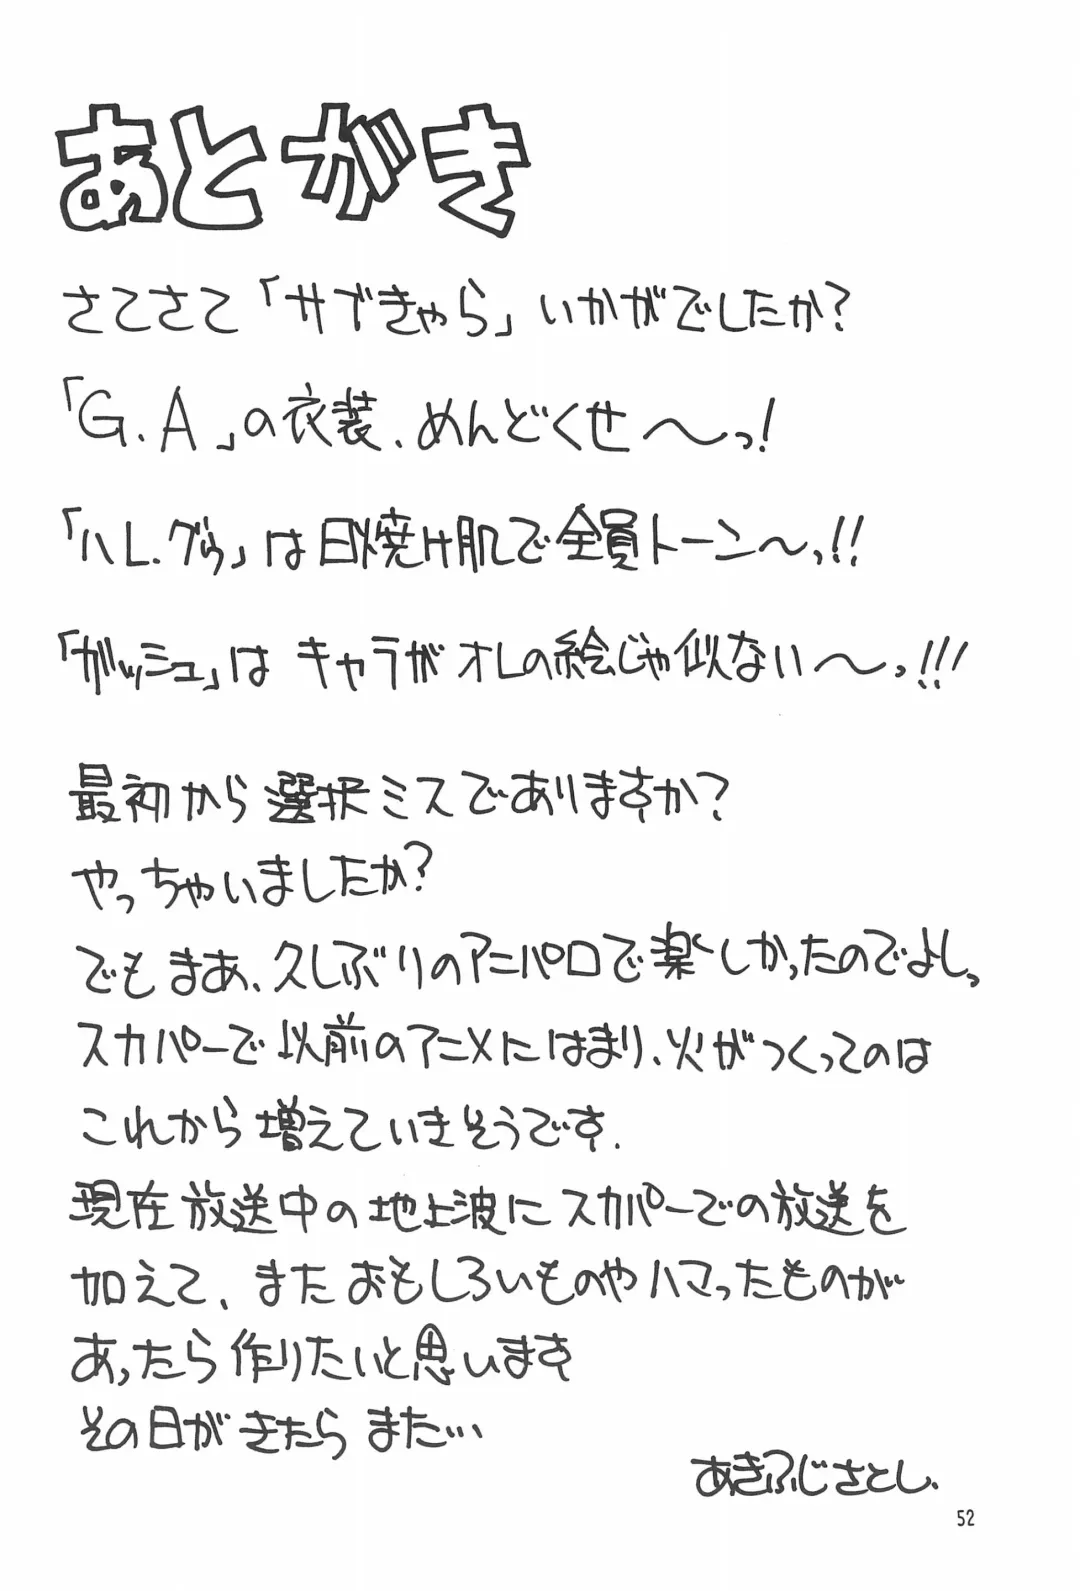 あとがき
さてさて「サブきゃら」いかがでしたか?
「G.A」の衣装、めんどくせ〜っ!
「ハレ.グゥ」は日焼け肌で全員トーン〜っ!!
「ガッシュ」は キャラがオレの絵じゃ似ない〜っ!!!
最初から選択ミスでありますか?
やっちゃいましたか?
でもまあ、久しぶりのアニパロで楽しかったのでよしっ
スカパーで以前のアニメにはまり、火がつくってのは
これから増えていきそうです.
現在放送中の地上波にスカパーでの放送を
加えて、またおもしろいものやハマったものが
あったら作りたいと思います
その日がきたらまた…
あきふじさとし.
52